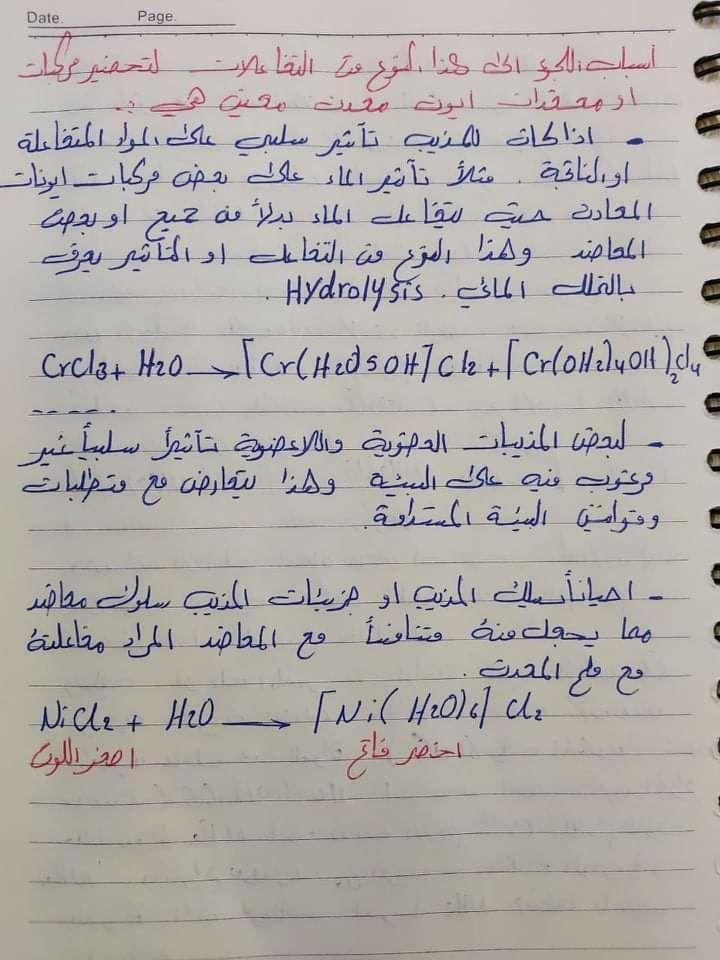 Date. Page.
أسباب اللجوء الى هذا النوع من التفاعلات لتحضير مركبات
او معقدات ايون معدن معين هي :.
- اذا كان للمذيب تأثير سلبي على المواد المتفاعلة
او الناتجة . مثلاً تأثير الماء على بعض مركبات ايونات
المعادن حيث يتفاعل الماء بدلاً من جميع او بعض
المعاضد وهذا النوع من التفاعل او التأثير يعرف
بالتحلل المائي . Hydrolysis .
CrCl3 + H2O → [Cr(H2O)5OH]Cl2 + [Cr(OH2)4OH]2Cl4
-----.
- لبعض المذيبات العضوية واللاعضوية تأثيراً سلبياً غير
مرغوب فيه على البيئة وهذا يتعارض مع متطلبات
وقوانين البيئة المستدامة.
- احياناً يسلك المذيب او جزيئات المذيب سلوك معاضد
مما يجعل منه متنافساً مع المعاضد المراد مفاعلتة
مع ملح المعدن .
NiCl2 + H2O → [Ni(H2O)6]Cl2
اصفر اللون اخضر فاتح